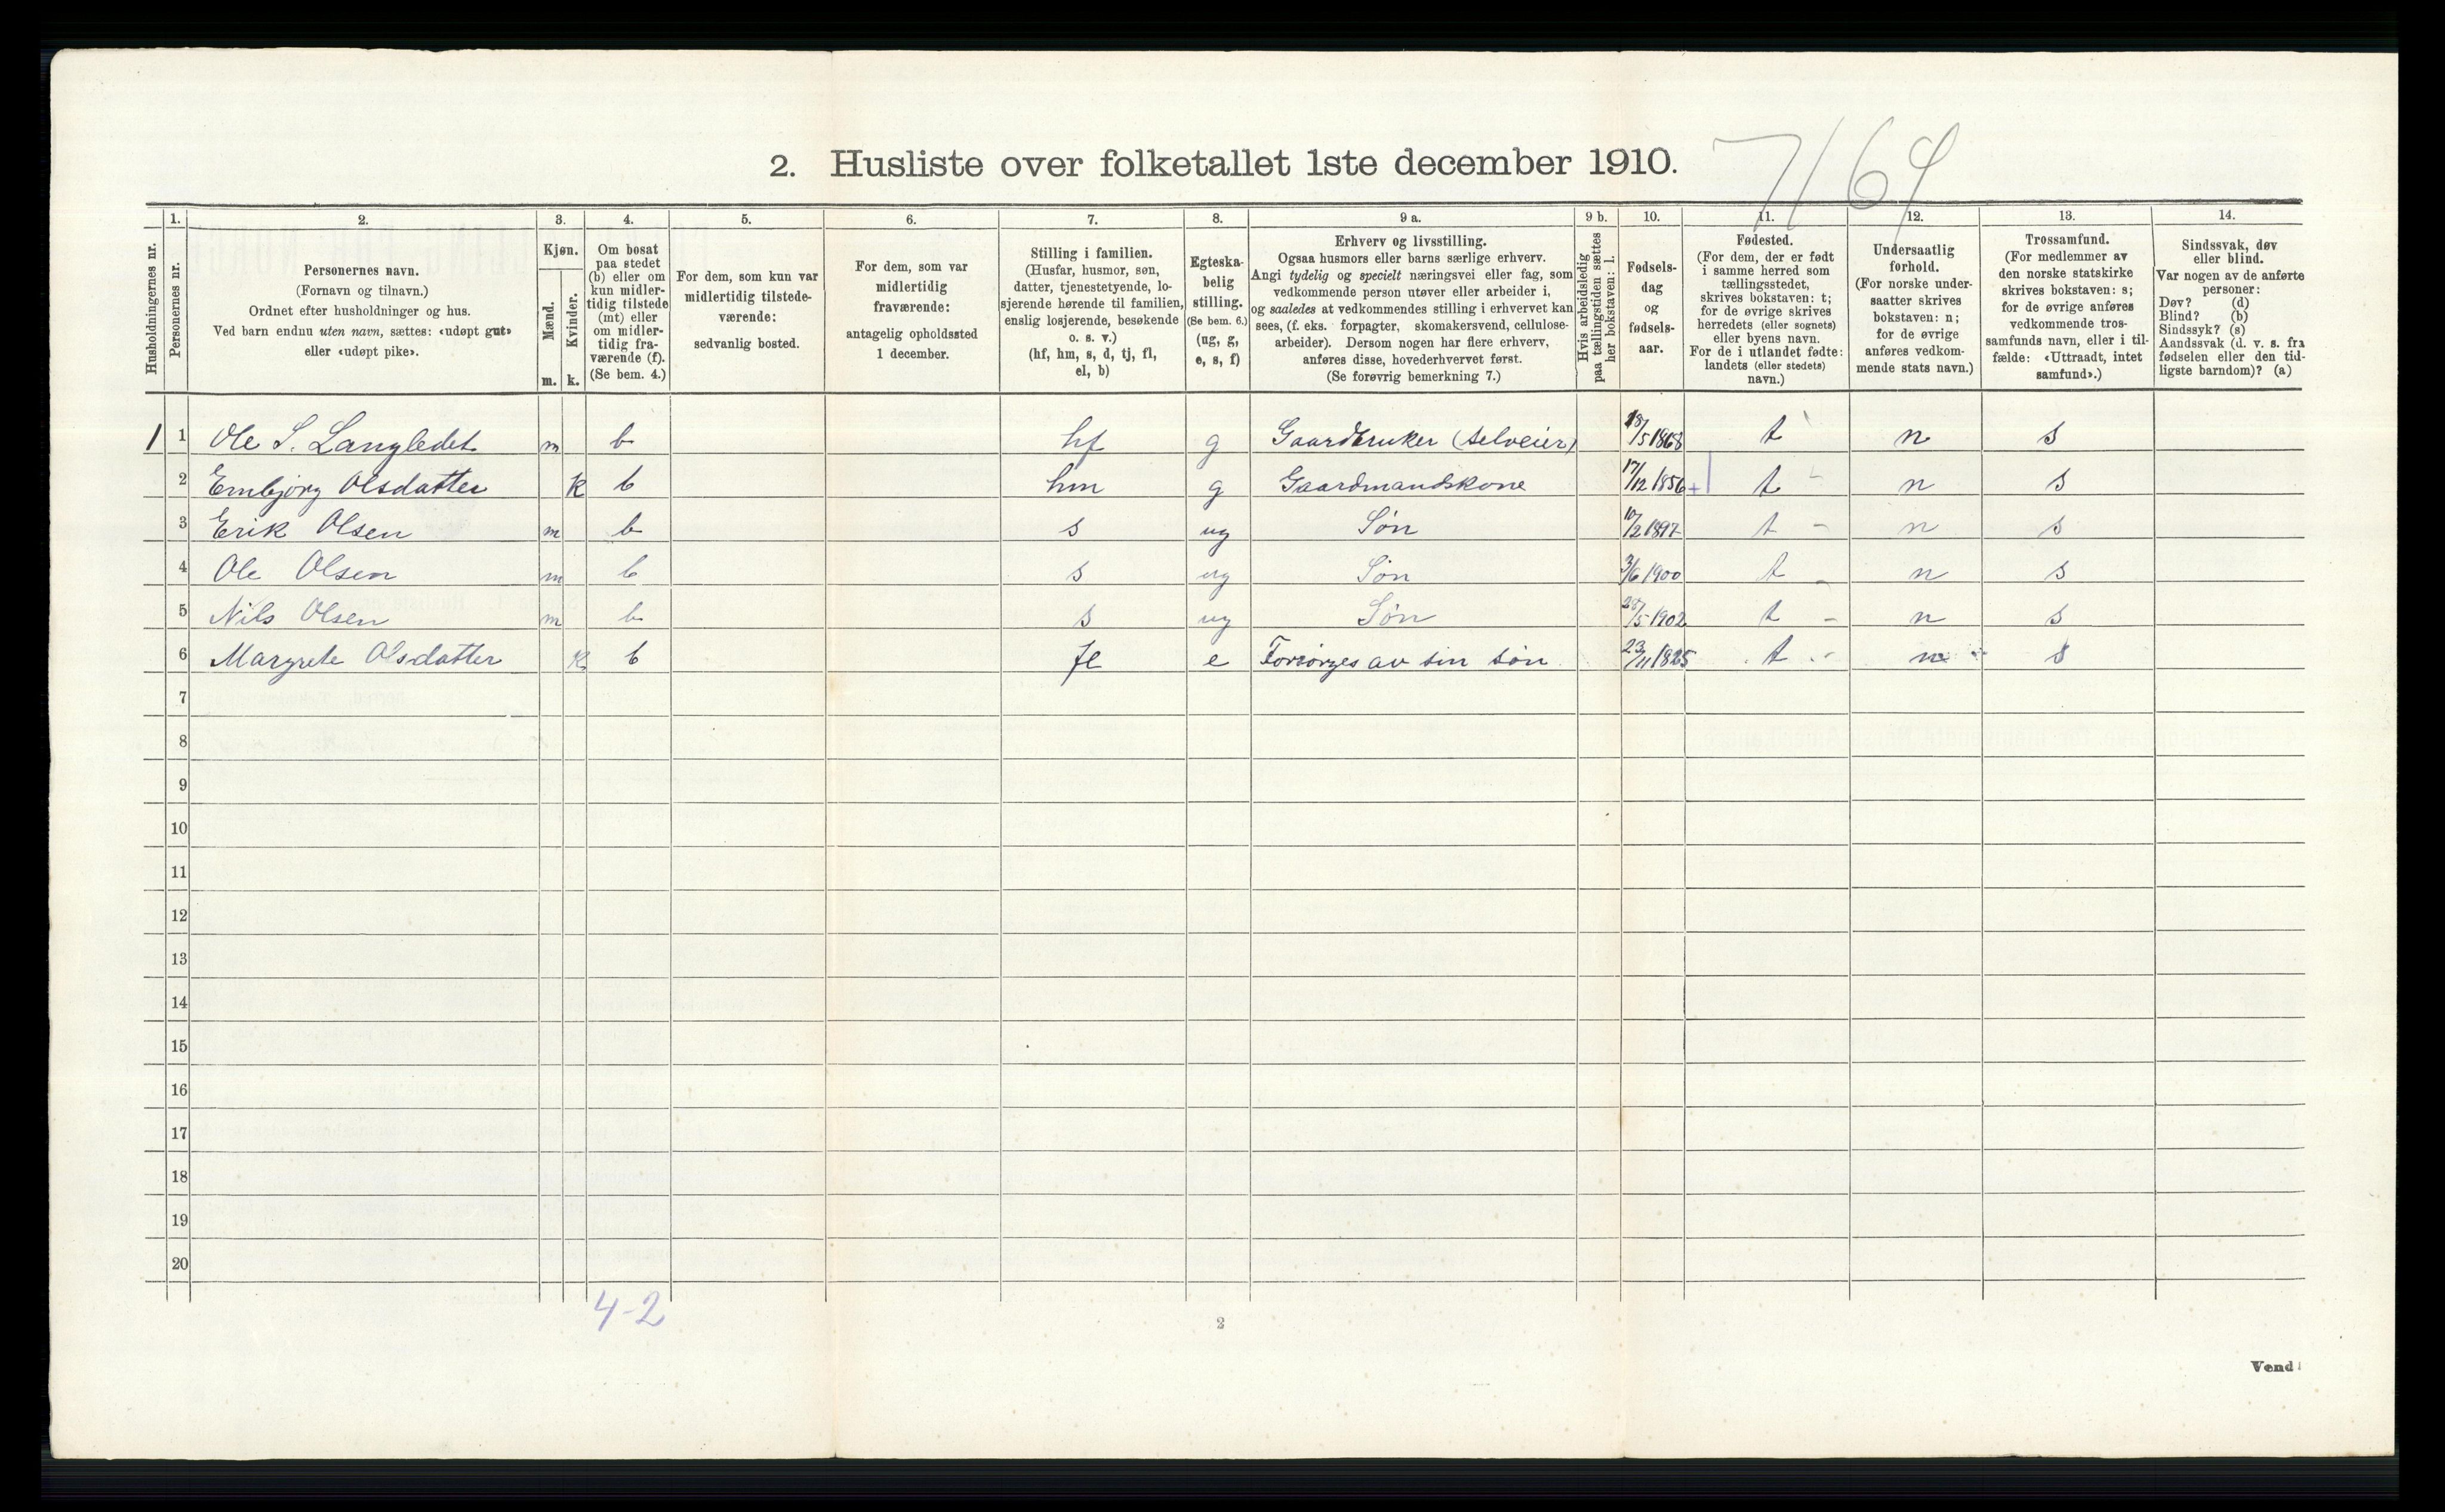 7/64
2. Husliste over folketallet 1ste december 1910.
Husholdningernes nr.
1.
Personernes nr.
2.
Personernes navn.
(Fornavn og tilnavn.)
Ordnet efter husholdninger og hus.
Ved barn endnu uten navn, sættes: «udøpt gut»
eller «udøpt pike».
3.
Kjøn.
Mænd.
Kvinder.
m. k.
4.
Om bosat
paa stedet
(b) eller om
kun midler-
tidig tilstede
(mt) eller
om midler-
tidig fra-
værende (f).
(Se bem. 4.)
5.
For dem, som kun var
midlertidig tilstede-
værende:
sedvanlig bosted.
6.
For dem, som var
midlertidig
fraværende:
antagelig opholdssted
1 december.
7.
Stilling i familien.
(Husfar, husmor, søn,
datter, tjenestetyende, lo-
sjerende hørende til familien,
enslig losjerende, besøkende
o. s. v.)
(hf, hm, s, d, tj, fl,
el, b)
8.
Egteska-
belig
stilling.
(Se bem. 6.)
(ug, g,
e, s, f)
9 a.
Erhverv og livsstilling.
Ogsaa husmors eller barns særlige erhverv.
Angi tydelig og specielt næringsvei eller fag, som
vedkommende person utøver eller arbeider i,
og saaledes at vedkommendes stilling i erhvervet kan
sees, (f. eks. forpagter, skomakersvend, cellulose-
arbeider). Dersom nogen har flere erhverv,
anføres disse, hovederhvervet først.
(Se forøvrig bemerkning 7.)
9 b.
Hvis arbeidsledig
paa tællingstiden sættes
her bokstaven: l.
10.
Fødsels-
dag
og
fødsels-
aar.
11.
Fødested.
(For dem, der er født
i samme herred som
tællingsstedet,
skrives bokstaven: t;
for de øvrige skrives
herredets (eller sognets)
eller byens navn.
For de i utlandet fødte:
landets (eller stedets)
navn.)
12.
Undersaatlig
forhold.
(For norske under-
saatter skrives
bokstaven: n;
for de øvrige
anføres vedkom-
mende stats navn.)
13.
Trossamfund.
(For medlemmer av
den norske statskirke
skrives bokstaven: s;
for de øvrige anføres
vedkommende tros-
samfunds navn, eller i til-
fælde: «Uttraadt, intet
samfund».)
14.
Sindssvak, døv
eller blind.
Var nogen av de anførte
personer:
Døv? (d)
Blind? (b)
Sindssyk? (s)
Aandssvak (d. v. s. fra
fødselen eller den tid-
ligste barndom)? (a)
1 1 Ole S. Langledet m b hf g Gaardbruker (selveier) 18/5 1868 t n s
2 Embjørg Olsdatter k b hm g Gaardmandskone 17/12 1856 + t - n s
3 Erik Olsen m b s ug Søn 10/2 1897 t - n s
4 Ole Olsen m b s ug Søn 3/6 1900 t - n s
5 Nils Olsen m b s ug Søn 28/5 1902 t - n s
6 Margrete Olsdatter k b fl e Forsørges av sin søn 23/11 1825 t - n s
7
8
9
10
11
12
13
14
15
16
17
18
19
20
4-2
2
Vend!